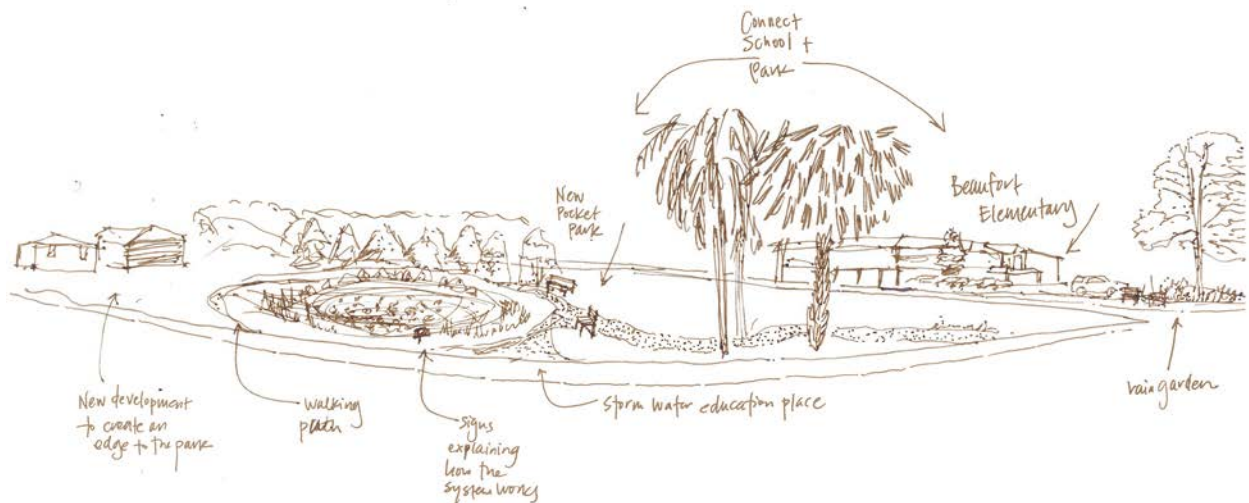 Connect
School +
Park
New
Pocket
Park
Beaufort
Elementary
New development
to create an
edge to the park
walking
path
signs
explaining
how the
system works
Storm water education place
rain garden